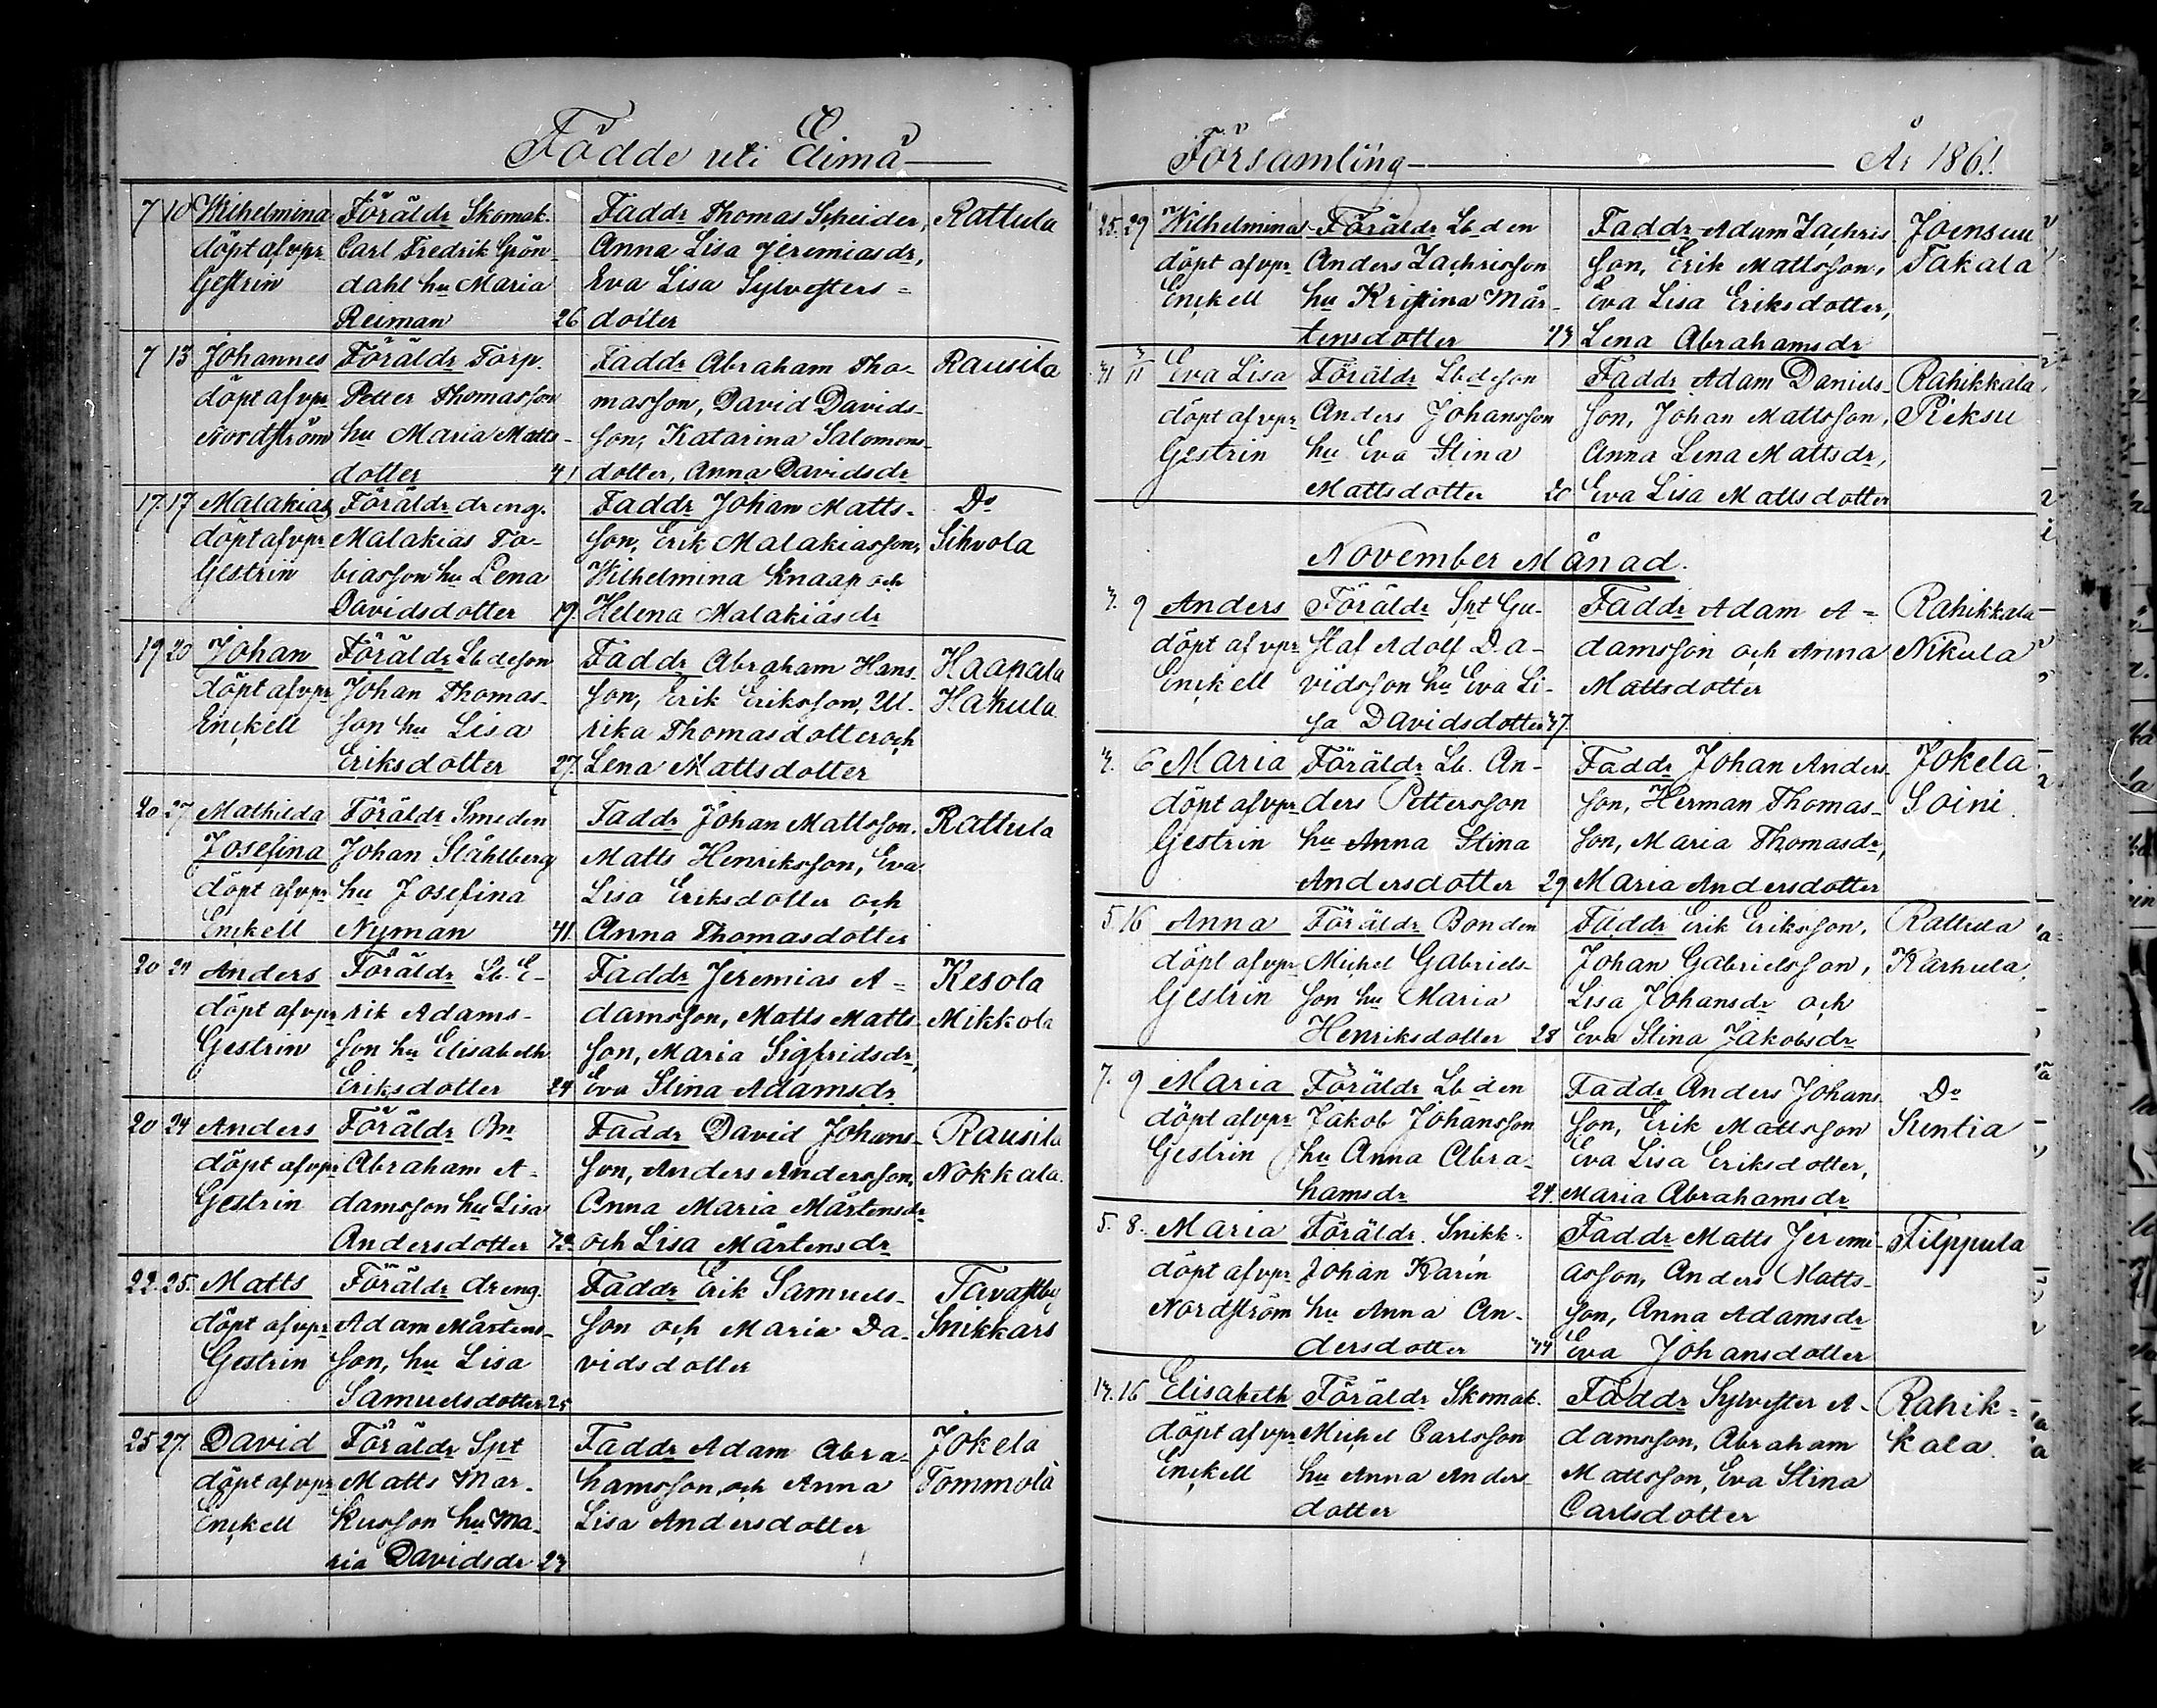 Födde uti Elimä
7 10 Wilhelmina Föräldr Skomak. Faddr Thomas Scheider, Rattula
döpt af vpr Carl Fredrik Grön- Anna Lisa Jeremiasdr,
Gestrin dahl hu Maria Eva Lisa Sylvesters-
Reiman 26 dotter
7 13 Johannes Föräldr Torp. Faddr Abraham Tho- Rausila
döpt af vpr Petter Thomasson masson, David Davids-
Nordström hu Maria Matts- son, Katarina Salomons-
dotter 41 dotter, Anna Davidsdr
17. 17 Malakias Föräldr dreng. Faddr Johan Matts- Do
döpt af vpr Malakias To- son, Erik Malakiasson, Sihvola
Gestrin biasson hu Lena Wilhelmina Knaap och
Davidsdotter 19. Helena Malakiasdr
19 20 Johan Föräldr Lbdeson Faddr Abraham Hans- Haapala
döpt af vpr Johan Thomas- son, Erik Eriksson, Ul- Hakula
Enckell son hu Lisa rika Thomasdotter och
Eriksdotter 27. Lena Mattsdotter
20 27 Mathilda Föräldr Smeden Faddr Johan Mattsson, Rattula
Josefina Johan Ståhlberg Matts Henriksson, Eva
döpt af vpr hu Josefina Lisa Eriksdotter och
Enckell Nyman 41. Anna Thomasdotter
20 24 Anders Föräldr Lb. E- Faddr Jeremias A- Kesola
döpt af vpr rik Adams- damsson, Matts Matts- Mikkola
Gestrin son hu Elisabeth son, Maria Sigfridsdr,
Eriksdotter 24 Eva Stina Adamsdr
20 24 Anders Föräldr Bn Faddr David Johans- Rausila
döpt af vpr Abraham A- son, Anders Andersson, Nokkala.
Gestrin damsson hu Lisa Anna Maria Mårtensdr
Andersdotter och Lisa Mårtensdr
22. 25. Matts Föräldr dreng. Faddr Erik Samuels- Tavastby
döpt af vpr Adam Mårtens- son och Maria Da- Snikkars
Gestrin son, hu Lisa vidsdotter
Samuelsdotter 25
25 27. David Föräldr Spt Faddr Adam Abra- Jokela
döpt af vpr Matts Mar- hamsson och Anna Tommola
Enckell kusson hu Ma- Lisa Andersdotter
ria Davidsdr 23
Församling År 1861.
25. 29 Wilhelmina Föräldr Lbden Faddr Adam Zachris Joensuu
döpt af vpr Anders Zachrisson son, Erik Mattsson, Takala
Enckell hu Kristina Mår- Eva Lisa Eriksdotter,
tensdotter 43 Lena Abrahamsdr
31 3/11 Eva Lisa Föräldr Lbdeson Faddr Adam Daniels- Rahikkala
döpt af vpr Anders Johansson son, Johan Mattsson, Pieksu
Gestrin hu Eva Stina Anna Lena Mattsdr,
Mattsdotter 20 Eva Lisa Mattsdotter
November Månad.
3. 9 Anders Föräldr Spt Gu- Faddr Adam A- Rahikkala
döpt af vpr staf Adolf Da- damsson och Anna Nikula
Enckell vidsson hu Eva Li- Mattsdotter
sa Davidsdotter 37.
3. 6 Maria Föräldr Lb. An- Faddr Johan Anders- Jokela
döpt af vpr ders Pettersson son, Herman Thomas- Soini.
Gestrin hu Anna Stina son, Maria Thomasdr,
Andersdotter 29 Maria Andersdotter
5 16 Anna Föräldr Bonden Faddr Erik Eriksson, Rattula
döpt af vpr Michel Gabriels- Johan Gabrielsson, Karhula.
Gestrin son hu Maria Lisa Johansdr och
Henriksdotter 28 Eva Stina Jakobsdr
7. 9 Maria Föräldr Lbden Faddr Anders Johans Do
döpt af vpr Jakob Johansson son, Erik Mattsson Suntia
Gestrin hu Anna Abra- Eva Lisa Eriksdotter,
hamsdr 24. Maria Abrahamsdr
5. 8. Maria Föräldr. Snikk. Faddr Matts Jeremi- Filppula
döpt af vpr Johan Karin asson, Anders Matts-
Nordström hu Anna An- son, Anna Adamsdr
dersdotter 44 Eva Johansdotter
13. 16 Elisabeth Föräldr Skomak. Faddr Sylvester A- Rahik-
döpt af vpr Michel Carlsson damsson, Abraham kala.
Enckell hu Anna Anders- Mattsson, Eva Stina
dotter Carlsdotter